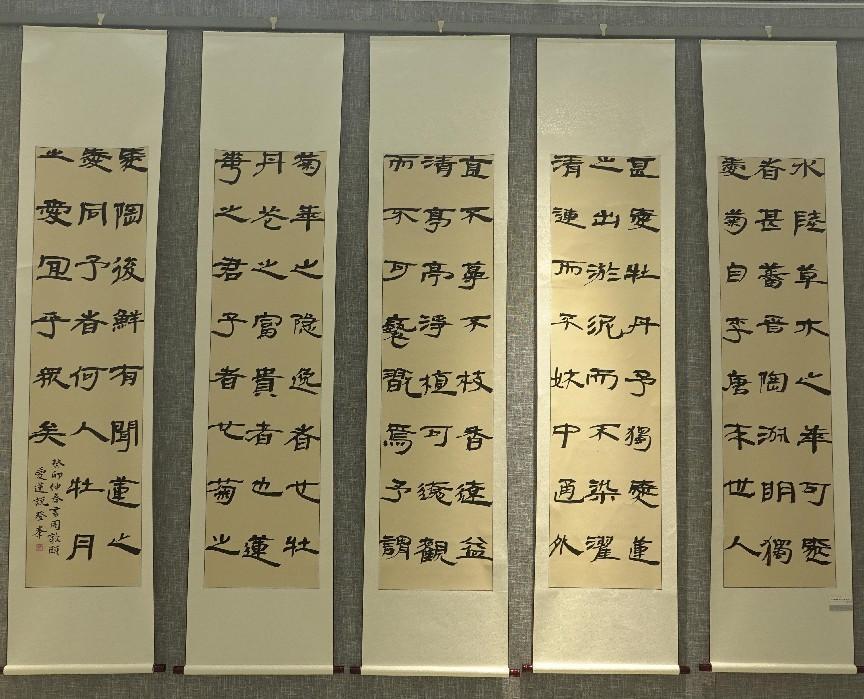 水陸草木之華可愛
者甚蕃晋陶渊明獨
愛菊自李唐来世人
甚愛牡丹予獨愛蓮
之出淤泥而不染濯
清漣而不妖中通外
直不蔓不枝香遠益
清亭亭淨植可遠觀
而不可褻翫焉予謂
菊華之隐逸者也牡
丹花之富貴者也蓮
華之君子者也菊之
愛陶後鮮有聞蓮之
愛同予者何人牡丹
之愛宜乎衆矣
癸卯仲春書周敦頤
愛蓮説登峯